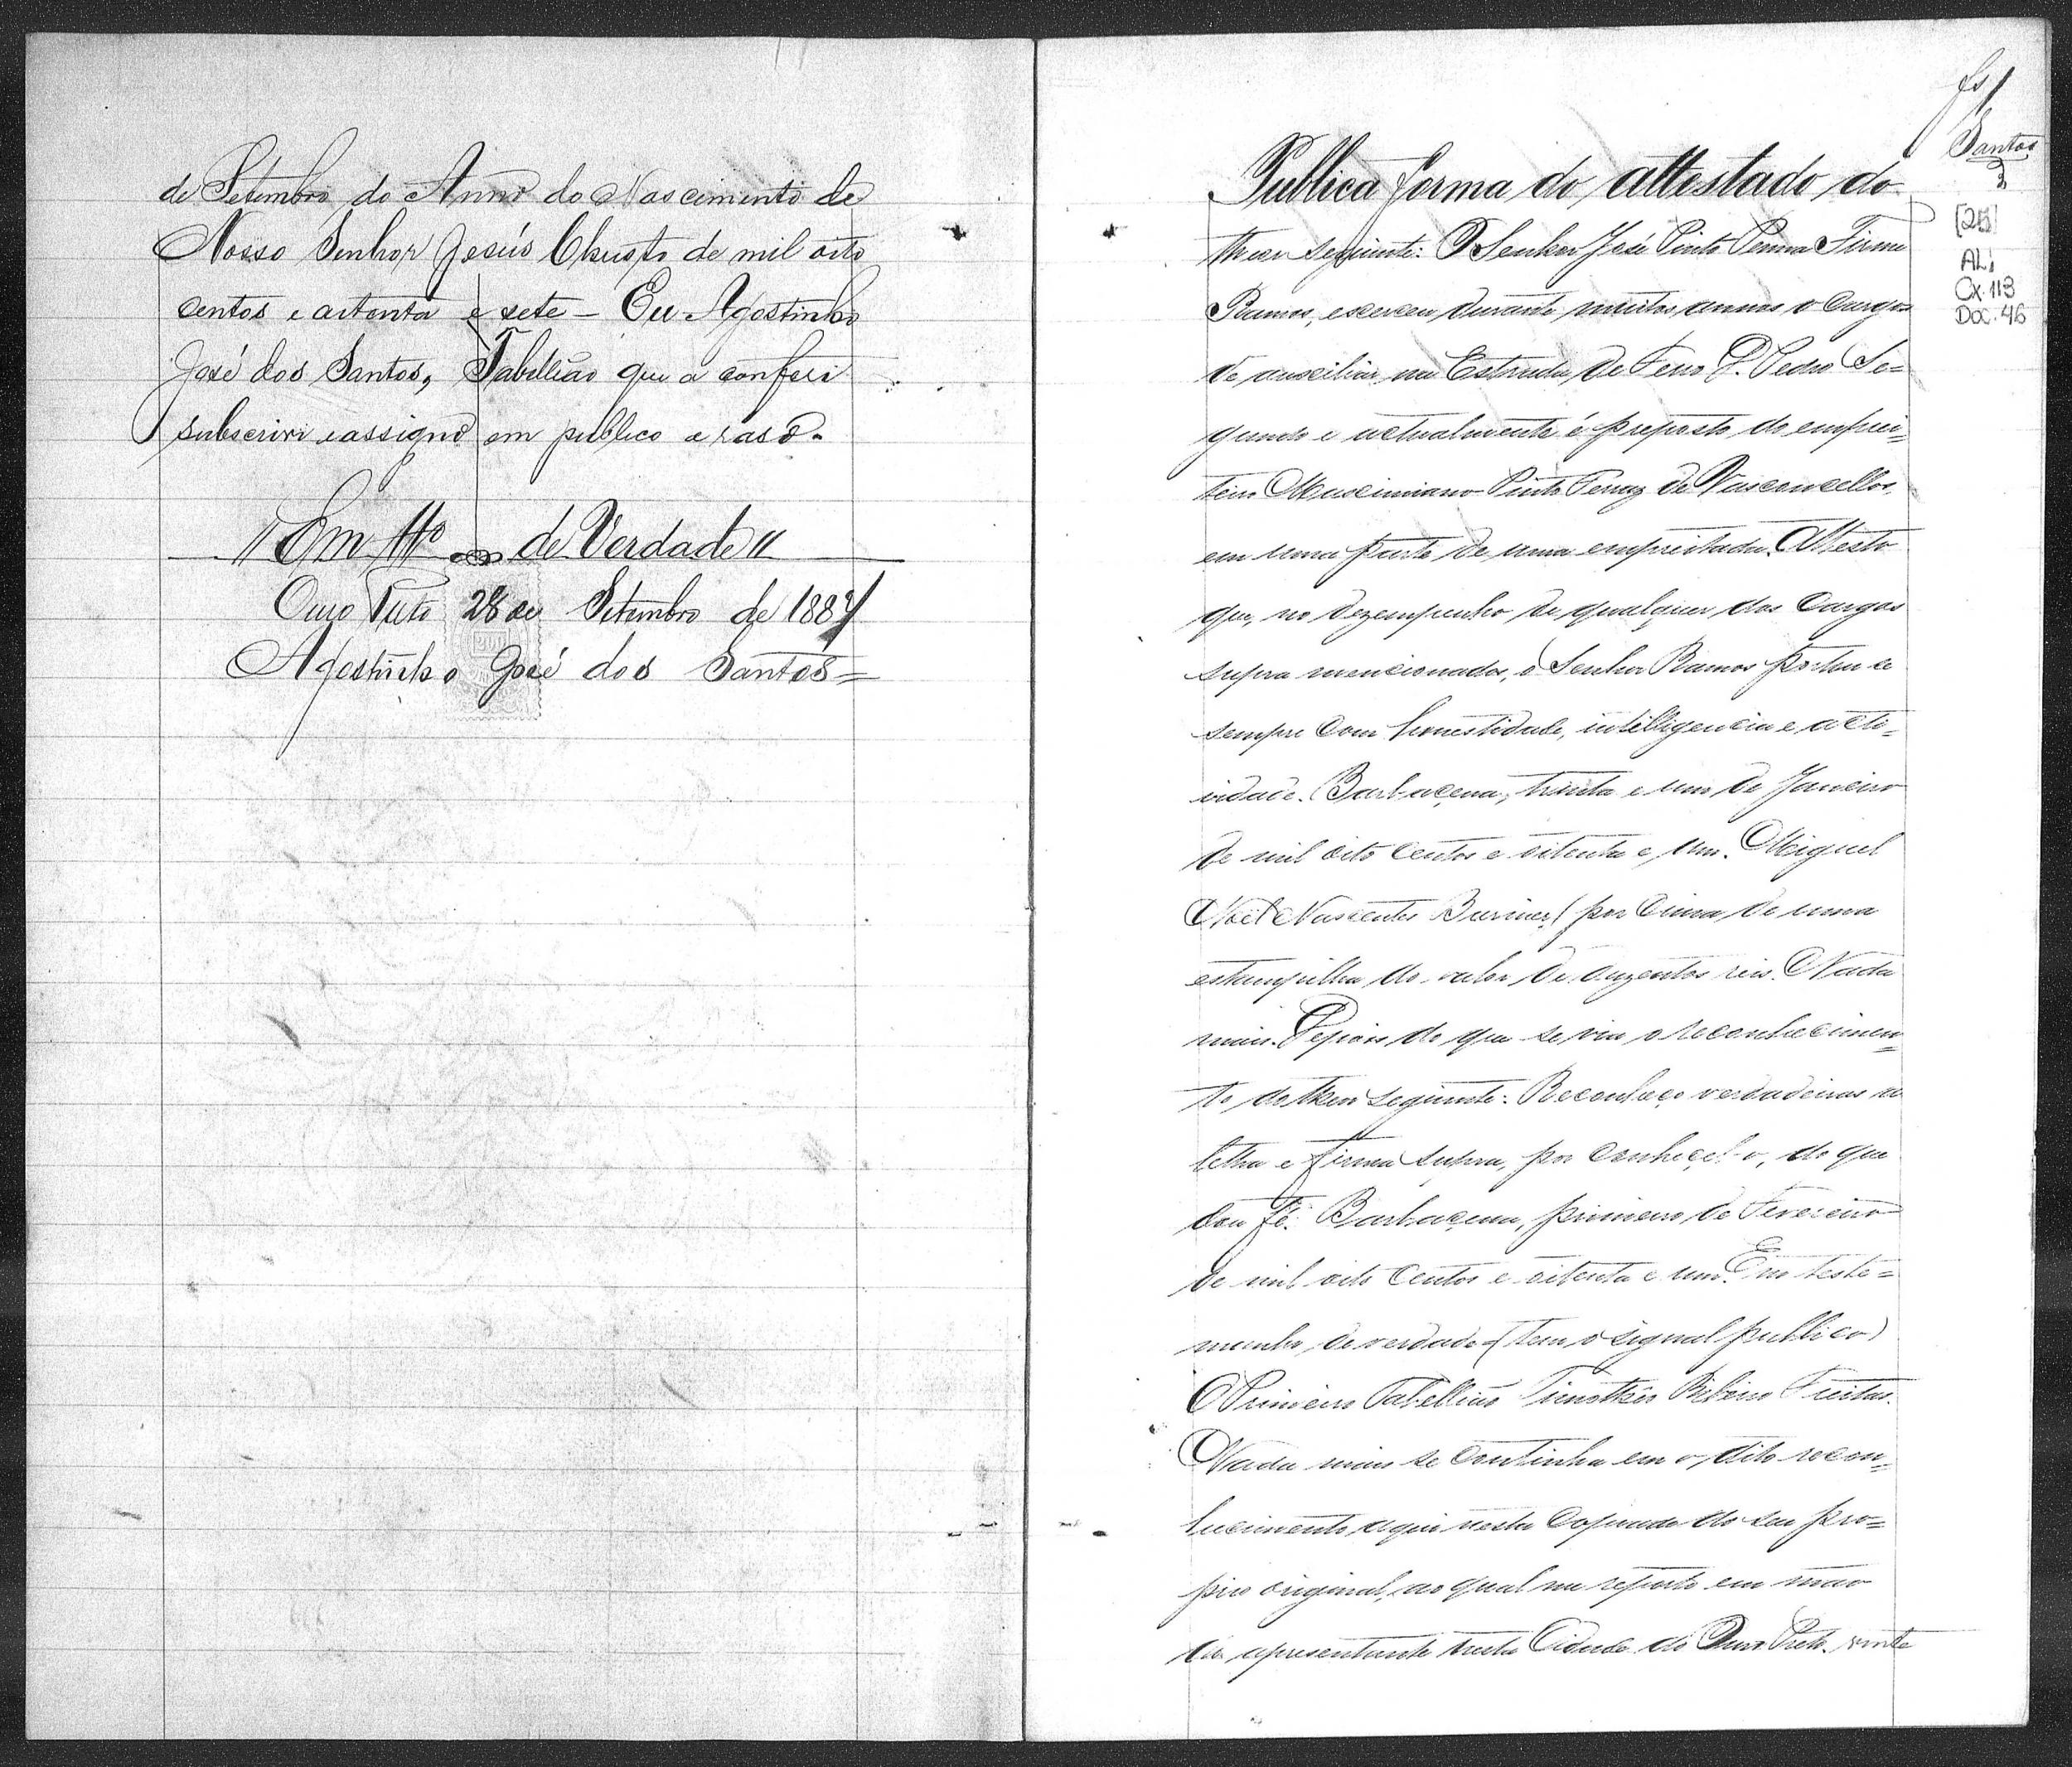 de Setembro do Anno do Nascimento de
Nosso Senhor Jesús Christo de mil oito
centos e oitenta e sete - Eu Agostinho
José dos Santos, Tabellião que a conferi
subscrivi e assigno em publico e raso.
"Em tto de Verdade"
Ouro Preto 28 de Setembro de 1887
Agostinho José dos Santos=
fs 1
Santos
[25]
AL1
Cx. 113
Doc. 46
Publica forma do attestado do
theor seguinte: O Senhor José Pinto Penna Firme
Ramos, exerceu durante muitos annos o cargo
de auxiliar na Estrada de Ferro D. Pedro Se=
gundo e actualmente é preposto do emprei=
teiro Maximiano Pinto Ferraz de Vasconcellos,
em uma parte de uma empreitada. Attesto
que, no dezempenho de qualquer dos cargos
supra mencionados, o Senhor Ramos portou-se
sempre com honestidade, intelligencia e acti=
vidade. Barbacena, trinta e um de Janeiro
de mil oito centos e oitenta e um. Miguel
Noel Nascentes Burnier (por cima de uma
estampilha do valor de duzentos reis. Nada
mais. Depois do que se via o reconhecimen=
to do theor seguinte: Reconheço verdadeiras a
letra e firma supra, por conhecel-o, do que
dou fé. Barbacena, primeiro de Fevereiro
de mil oito centos e oitenta e um. Em teste=
munho de verdade (tem o signal publico)
O Primeiro Tabellião Timotheo Ribeiro Freitas.
Nada mais se continha em o dito recon=
hecimento aqui nesta copiado do seu pro=
prio original, ao qual me reporto em mão
do apresentante nesta Cidade do Ouro Preto. vinte